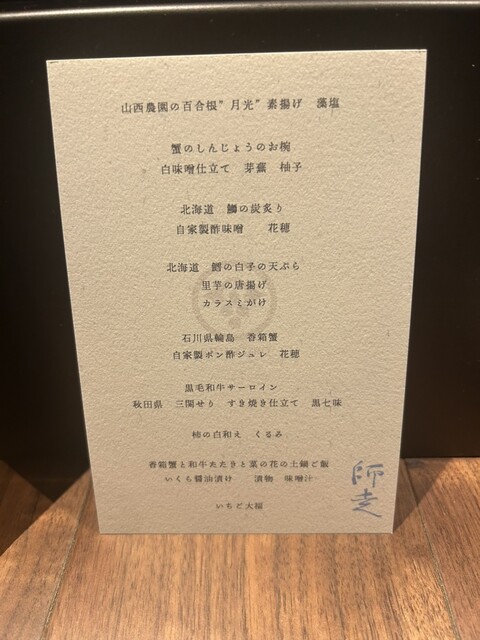 山西農園の百合根”月光”素揚げ　藻塩
蟹のしんじょうのお椀
白味噌仕立て　芽蕪　柚子
北海道　鰤の炭炙り
自家製酢味噌　花穂
北海道　鱈の白子の天ぷら
里芋の唐揚げ
カラスミがけ
石川県輪島　香箱蟹
自家製ポン酢ジュレ　花穂
黒毛和牛サーロイン
秋田県　三関せり　すき焼き仕立て　黒七味
柿の白和え　くるみ
香箱蟹と和牛たたきと菜の花の土鍋ご飯
いくら醤油漬け　漬物　味噌汁
いちご大福
師走